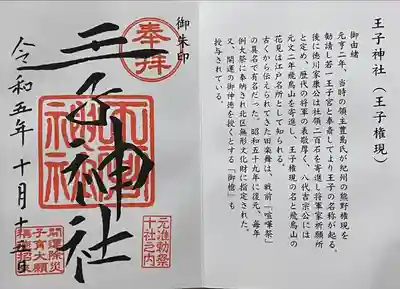 御朱印
奉拝
王子神社
王子神社
令和五年十月十五日
元准勅祭
十社之内
開運除災
子育大願
王子神社(王子権現)
御由緒
元亨二年、当時の領主豊島氏が紀州の熊野権現を
勧請し若一王子宮と奉斎してより王子の名称が起る。
後に徳川家康公は社領二百石を寄進し将軍家祈願所
と定め、歴代の将軍の表敬厚く、八代吉宗公には
元文二年飛鳥山を寄進し、王子権現の名と飛鳥山の
花見は江戸名所として知られる。
古くから伝えられてきた田楽舞は、戦前「喧嘩祭」
の異名で有名だった。昭和五十九年に復元、毎年
例大祭に奉納され北区無形文化財に指定された。
又、開運の御神徳を授くとする「御槍」も
授与されている。